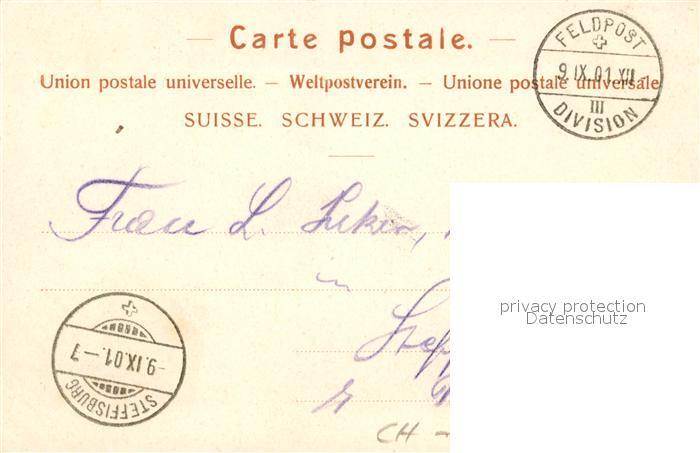 — Carte postale. —
Union postale universelle. — Weltpostverein. — Unione postale universale
SUISSE. SCHWEIZ. SVIZZERA.
FELDPOST
9.IX.01.XII
III
DIVISION
Frau L.
in
privacy protection
Datenschutz
-9.IX.01.-7
STEFFISBURG
CH -